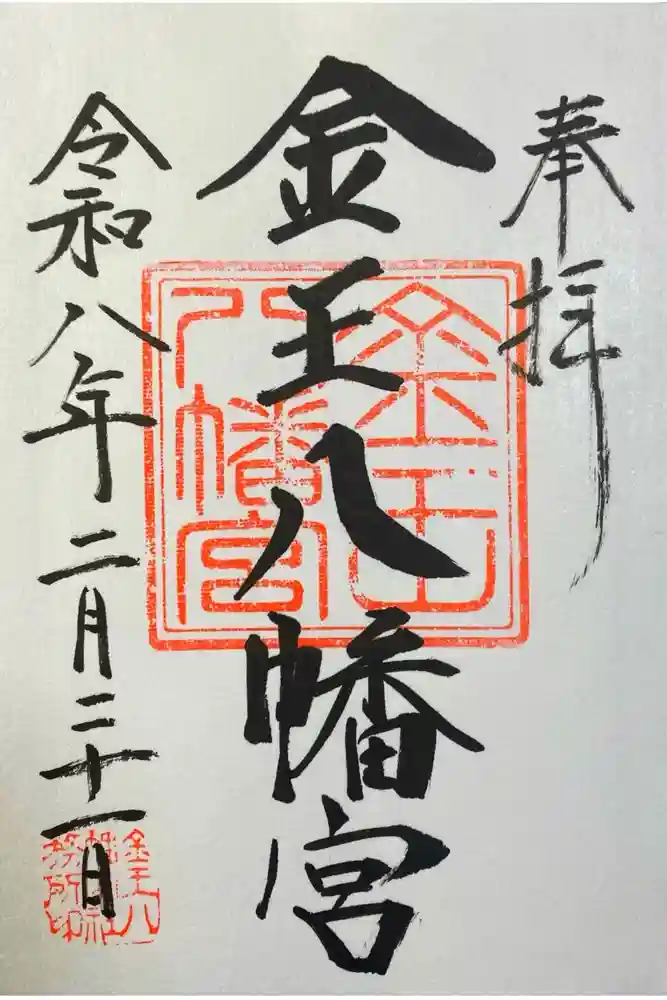 奉拝
金王八幡宮
令和八年二月二十一日
金王八幡宮
金王八幡神社社務所印